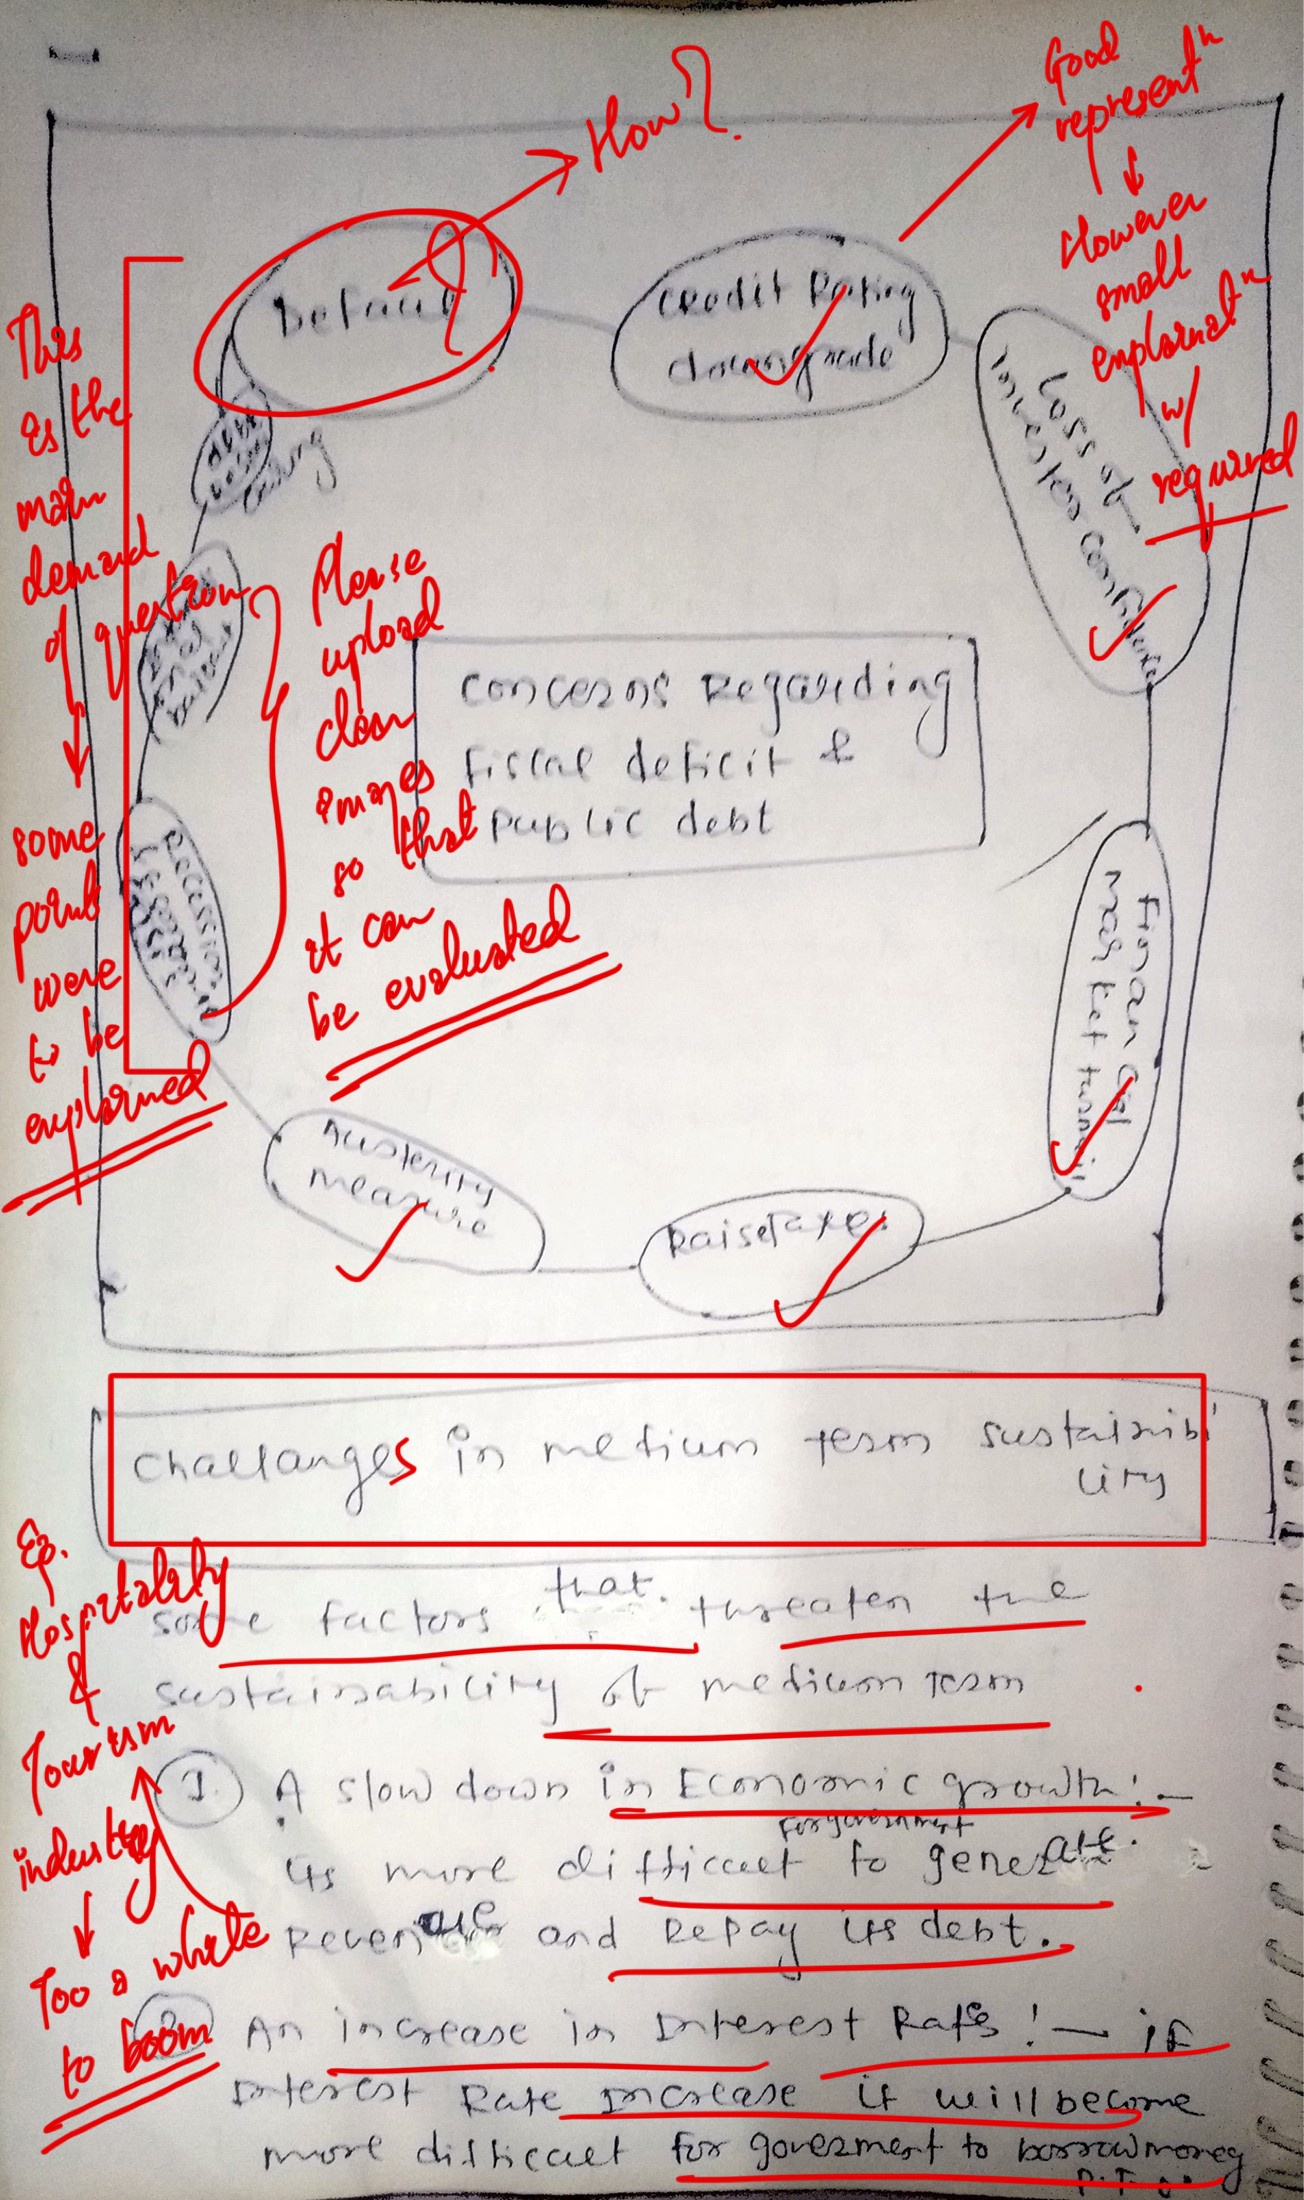 How?
Good
represent^n
↓
However
small
explanat^n
w/
required
Default
Credit Rating
downgrade
Loss of
Investors Confidence
Financial
market turmoil
Raise Taxes
Austerity
measure
Recession
Concerns Regarding
fiscal deficit &
public debt
This
is the
main
demand
of question
↓
some
points
were
to be
explained
Please
upload
clear
images
so that
it can
be evaluated
Challanges in medium term sustainibi
lity
some factors that threaten the
sustainability of medium term
1. A slow down in Economic growth! —
its more difficult to generate
for government
Revenue and Repay its debt.
An increase in Interest Rates! — if
Interest Rate increase it will become
more difficult for goverment to borrow money
P.T.O
Eg.
Hospitality
&
Tourism
industry
↓
Too a while
to boom